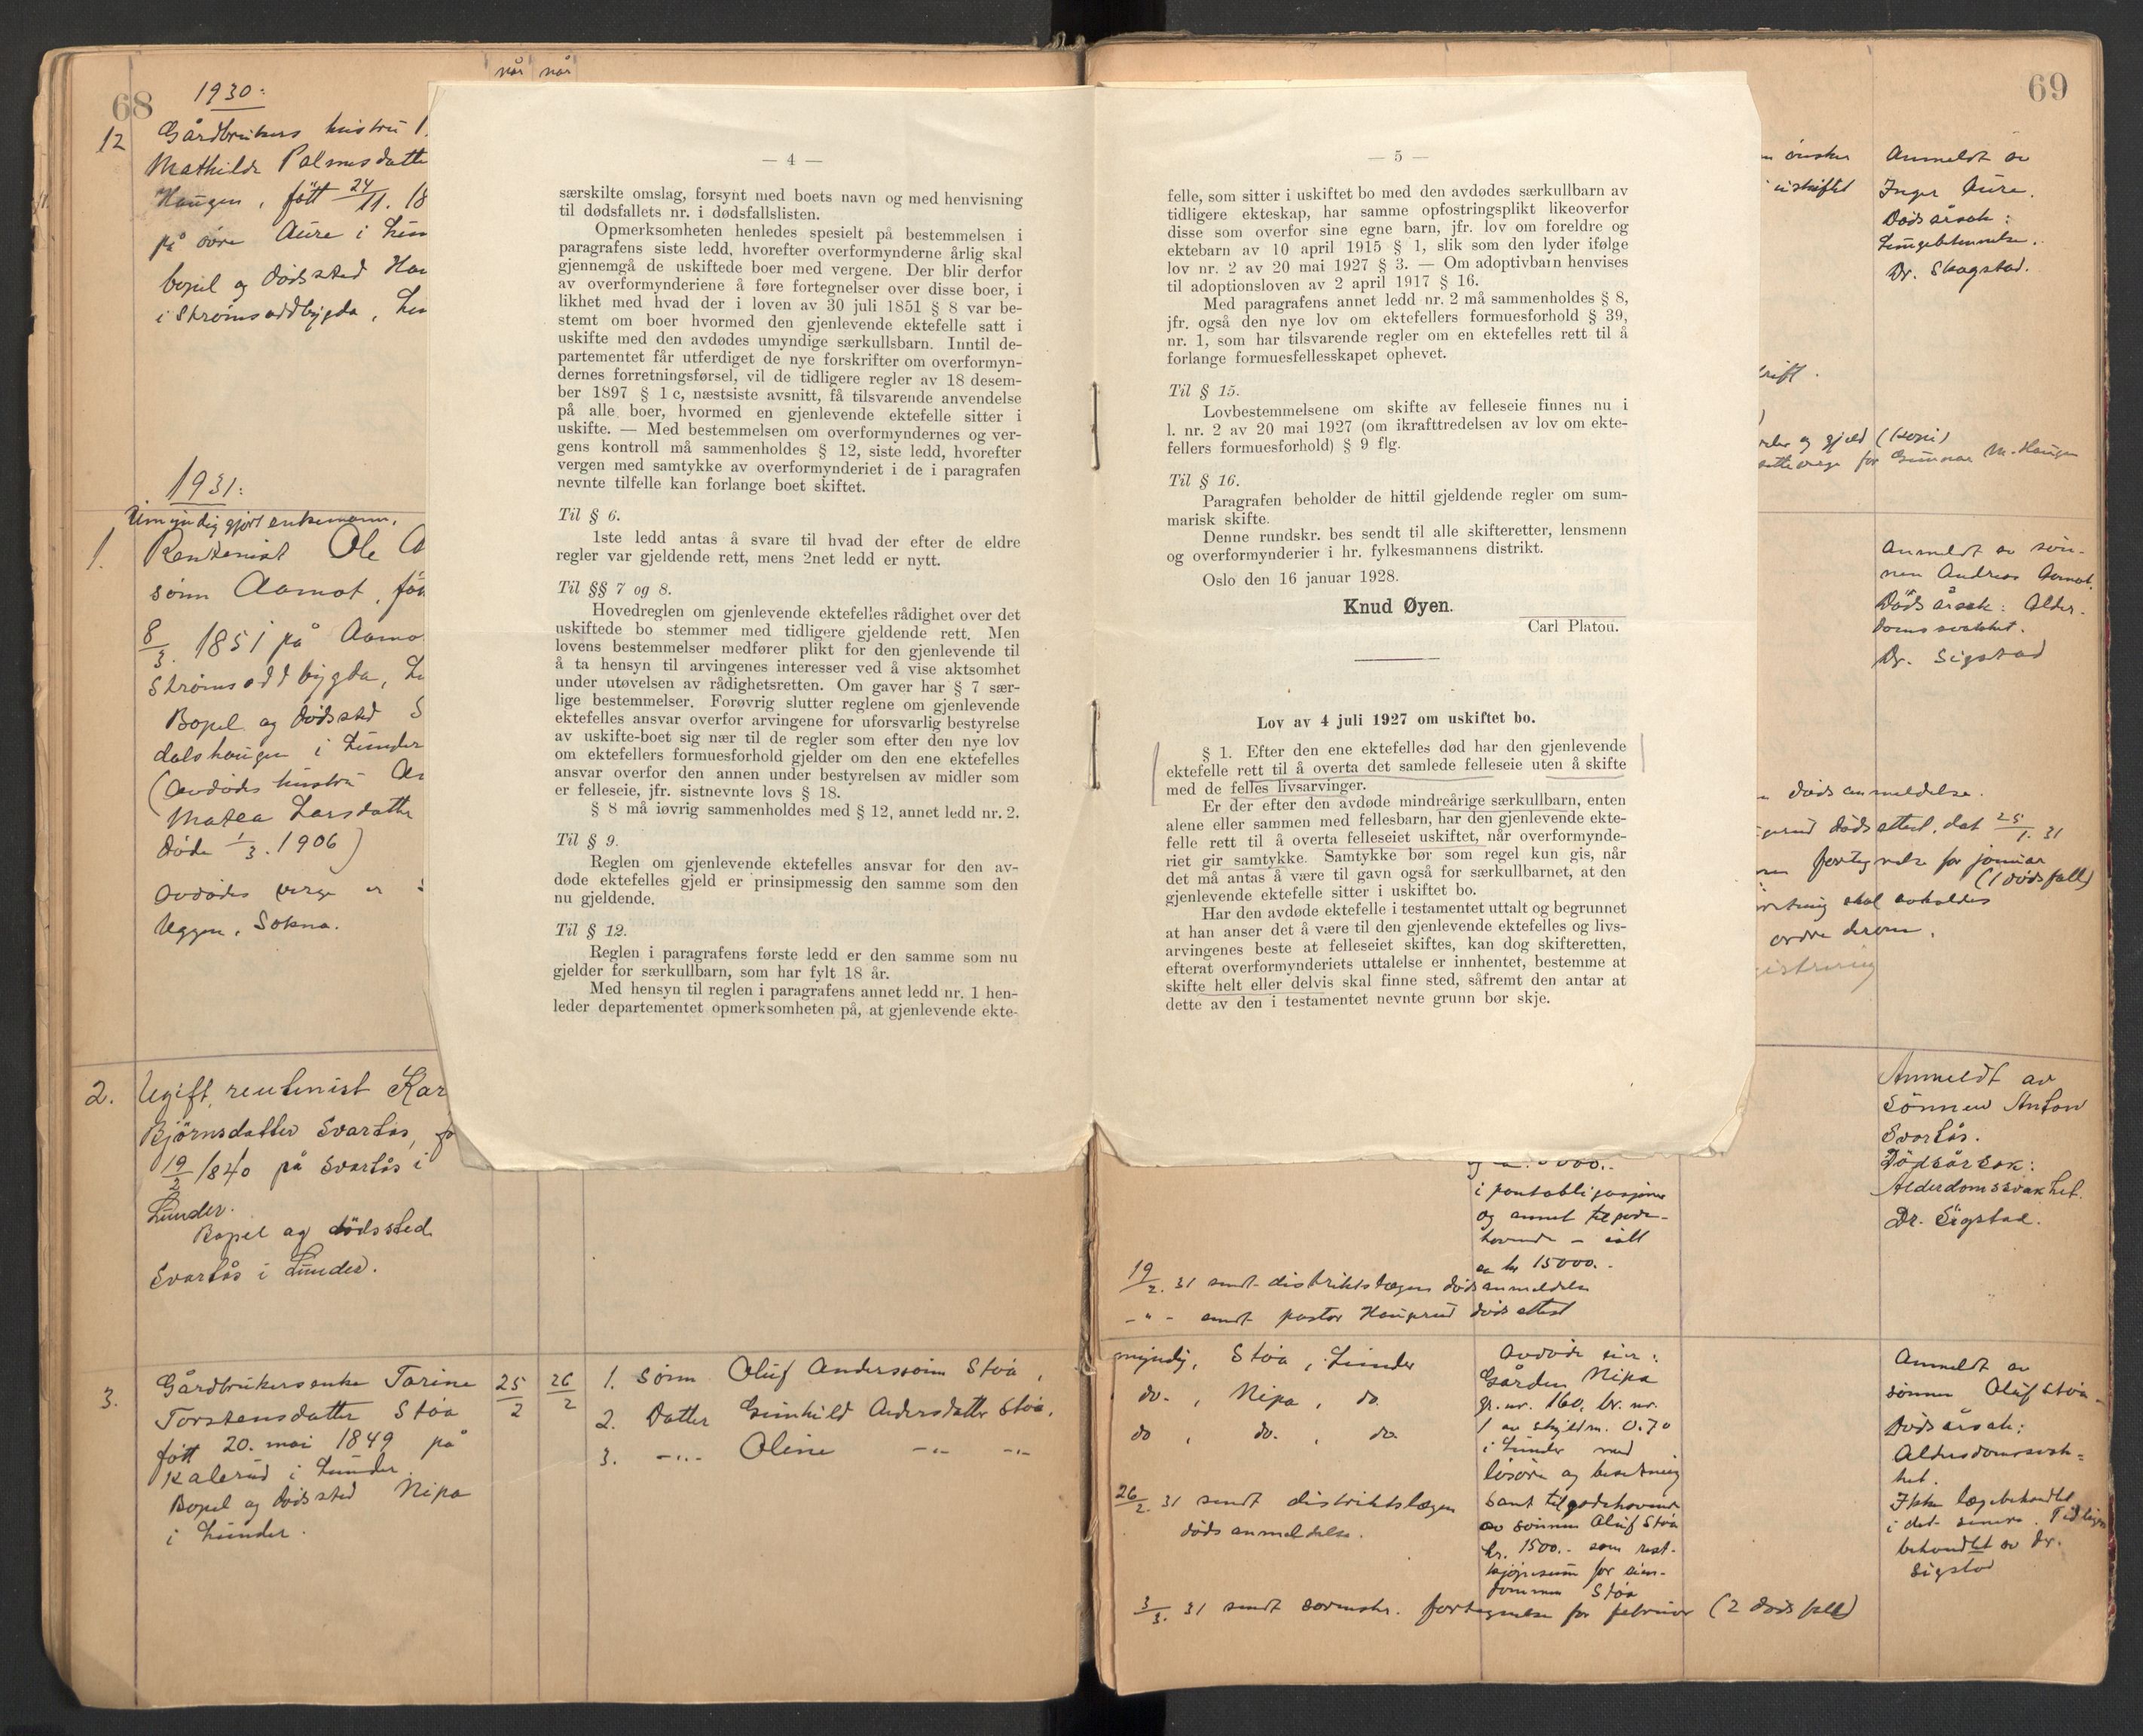 når når
68
1930:
12 Gårdbrukers hustru
Mathilde Palmesdatte
Haugen, fött 24/11. 18
på övre Aure i
bopel og dödssted
i Strömsoddbygda,
1931:
Umyndig gjort enkemann.
1. Rentenist Ole
sönn Aamot, fö
8/3. 1851 på Aamo
Strömsoddbygda,
Bopel og dödssted S
dalshaugen i Lunder
(Avdödes hustru
Matea Larsdatter
döde 1/3. 1906)
Avdödes verge er
Uggen, Sokna.
2. Ugift, rentenist Kar
Björnsdatter Svartås,
19/2 1840 på Svartås i
Lunder.
Bopel og dödssted
Svartås i Lunder.
3. Gårdbrukerenke Torine
Torstensdatter Stöa
fött 20. mai 1849 på
Kalerud i Lunder.
Bopel og dödssted Nipa
i Lunder.
25/2 26/2
1. Sönn Oluf Anderssönn Stöa,
2. Datter Gunhild Andersdatter Stöa,
3. -"- Oline -"- -"-
— 4 —
særskilte omslag, forsynt med boets navn og med henvisning
til dødsfallets nr. i dødsfallslisten.
Opmerksomheten henledes spesielt på bestemmelsen i
paragrafens siste ledd, hvorefter overformynderne årlig skal
gjennemgå de uskiftede boer med vergene. Der blir derfor
av overformynderiene å føre fortegnelser over disse boer, i
likhet med hvad der i loven av 30 juli 1851 § 8 var be-
stemt om boer hvormed den gjenlevende ektefelle satt i
uskifte med den avdødes umyndige særkullsbarn. Inntil de-
partementet får utferdiget de nye forskrifter om overformyn-
dernes forretningsførsel, vil de tidligere regler av 18 desem-
ber 1897 § 1 c, næstsiste avsnitt, få tilsvarende anvendelse
på alle boer, hvormed en gjenlevende ektefelle sitter i
uskifte. — Med bestemmelsen om overformyndernes og ver-
gens kontroll må sammenholdes § 12, siste ledd, hvorefter
vergen med samtykke av overformynderiet i de i paragrafen
nevnte tilfelle kan forlange boet skiftet.
Til § 6.
1ste ledd antas å svare til hvad der efter de eldre
regler var gjeldende rett, mens 2net ledd er nytt.
Til §§ 7 og 8.
Hovedreglen om gjenlevende ektefelles rådighet over det
uskiftede bo stemmer med tidligere gjeldende rett. Men
lovens bestemmelser medfører plikt for den gjenlevende til
å ta hensyn til arvingenes interesser ved å vise aktsomhet
under utøvelsen av rådighetsretten. Om gaver har § 7 sær-
lige bestemmelser. Forøvrig slutter reglene om gjenlevende
ektefelles ansvar overfor arvingene for uforsvarlig bestyrelse
av uskifte-boet sig nær til de regler som efter den nye lov
om ektefellers formuesforhold gjelder om den ene ektefelles
ansvar overfor den annen under bestyrelsen av midler som
er felleseie, jfr. sistnevnte lovs § 18.
§ 8 må iøvrig sammenholdes med § 12, annet ledd nr. 2.
Til § 9.
Reglen om gjenlevende ektefelles ansvar for den av-
døde ektefelles gjeld er prinsipmessig den samme som den
nu gjeldende.
Til § 12.
Reglen i paragrafens første ledd er den samme som nu
gjelder for særkullbarn, som har fylt 18 år.
Med hensyn til reglen i paragrafens annet ledd nr. 1 hen-
leder departementet opmerksomheten på, at gjenlevende ekte-
— 5 —
felle, som sitter i uskiftet bo med den avdødes særkullbarn av
tidligere ekteskap, har samme opfostringsplikt likeoverfor
disse som overfor sine egne barn, jfr. lov om foreldre og
ektebarn av 10 april 1915 § 1, slik som den lyder ifølge
lov nr. 2 av 20 mai 1927 § 3. — Om adoptivbarn henvises
til adoptionsloven av 2 april 1917 § 16.
Med paragrafens annet ledd nr. 2 må sammenholdes § 8,
jfr. også den nye lov om ektefellers formuesforhold § 39,
nr. 1, som har tilsvarende regler om en ektefelles rett til å
forlange formuesfellesskapet ophevet.
Til § 15.
Lovbestemmelsene om skifte av felleseie finnes nu i
l. nr. 2 av 20 mai 1927 (om ikrafttredelsen av lov om ekte-
fellers formuesforhold) § 9 flg.
Til § 16.
Paragrafen beholder de hittil gjeldende regler om sum-
marisk skifte.
Denne rundskr. bes sendt til alle skifteretter, lensmenn
og overformynderier i hr. fylkesmannens distrikt.
Oslo den 16 januar 1928.
Knud Øyen.
Carl Platou.
Lov av 4 juli 1927 om uskiftet bo.
§ 1. Efter den ene ektefelles død har den gjenlevende
ektefelle rett til å overta det samlede felleseie uten å skifte
med de felles livsarvinger.
Er der efter den avdøde mindreårige særkullbarn, enten
alene eller sammen med fellesbarn, har den gjenlevende ekte-
felle rett til å overta felleseiet uskiftet, når overformynde-
riet gir samtykke. Samtykke bør som regel kun gis, når
det må antas å være til gavn også for særkullbarnet, at den
gjenlevende ektefelle sitter i uskiftet bo.
Har den avdøde ektefelle i testamentet uttalt og begrunnet
at han anser det å være til den gjenlevende ektefelles og livs-
arvingenes beste at felleseiet skiftes, kan dog skifteretten,
efterat overformynderiets uttalelse er innhentet, bestemme at
skifte helt eller delvis skal finne sted, såfremt den antar at
dette av den i testamentet nevnte grunn bør skje.
69
ønsker
uskiftet
og gjeld (kopi)
for Gunnar M. Haugen
dödsanmeldelse.
dödsattest, dat 25/1. 31
fortegnelse for januar
(1 dödsfall)
skal avholdes
ordre derom.
Anmeldt av
Inger Aure.
Dödsårsak:
Lungebetennelse.
Dr. Skagstad.
Anmeldt av sön-
nen Andreas Aamot.
Dödsårsak: Alder-
domssvakhet.
Dr. Sigstad
Anmeldt av
Sönnen Anton
Svartås.
Dödsårsak:
Alderdomssvakhet.
Dr. Sigstad.
i pantobligasjoner
og annet tilgode-
havende – ialt
ca kr 15000.-
19/2. 31 sendt distriktslægen dödsanmeldelse
-"- sendt pastor Haugerud dödsattest
myndig, Stöa, Lunder
do., Nipa, do.
do, do., do.
26/2. 31 sendt distriktslægen
dödsanmeldelse.
Avdöde eier:
Gården Nipa
gr. nr. 160, br. nr.
1 av skyldm. 0.70
i Lunder med
lösöre og besetning
samt tilgodehavende
av sönnen Oluf Stöa
kr. 1500.- som rest-
kjöpesum for eien-
dommen Stöa
3/3. 31 sendt sorenskr. fortegnelse for februar (2 dödsfall)
Anmeldt av
sönnen Oluf Stöa
Dödsårsak:
Alderdomssvak-
het.
Ikke lægebehandlet
i det senere. Tidligere
behandlet av dr.
Sigstad